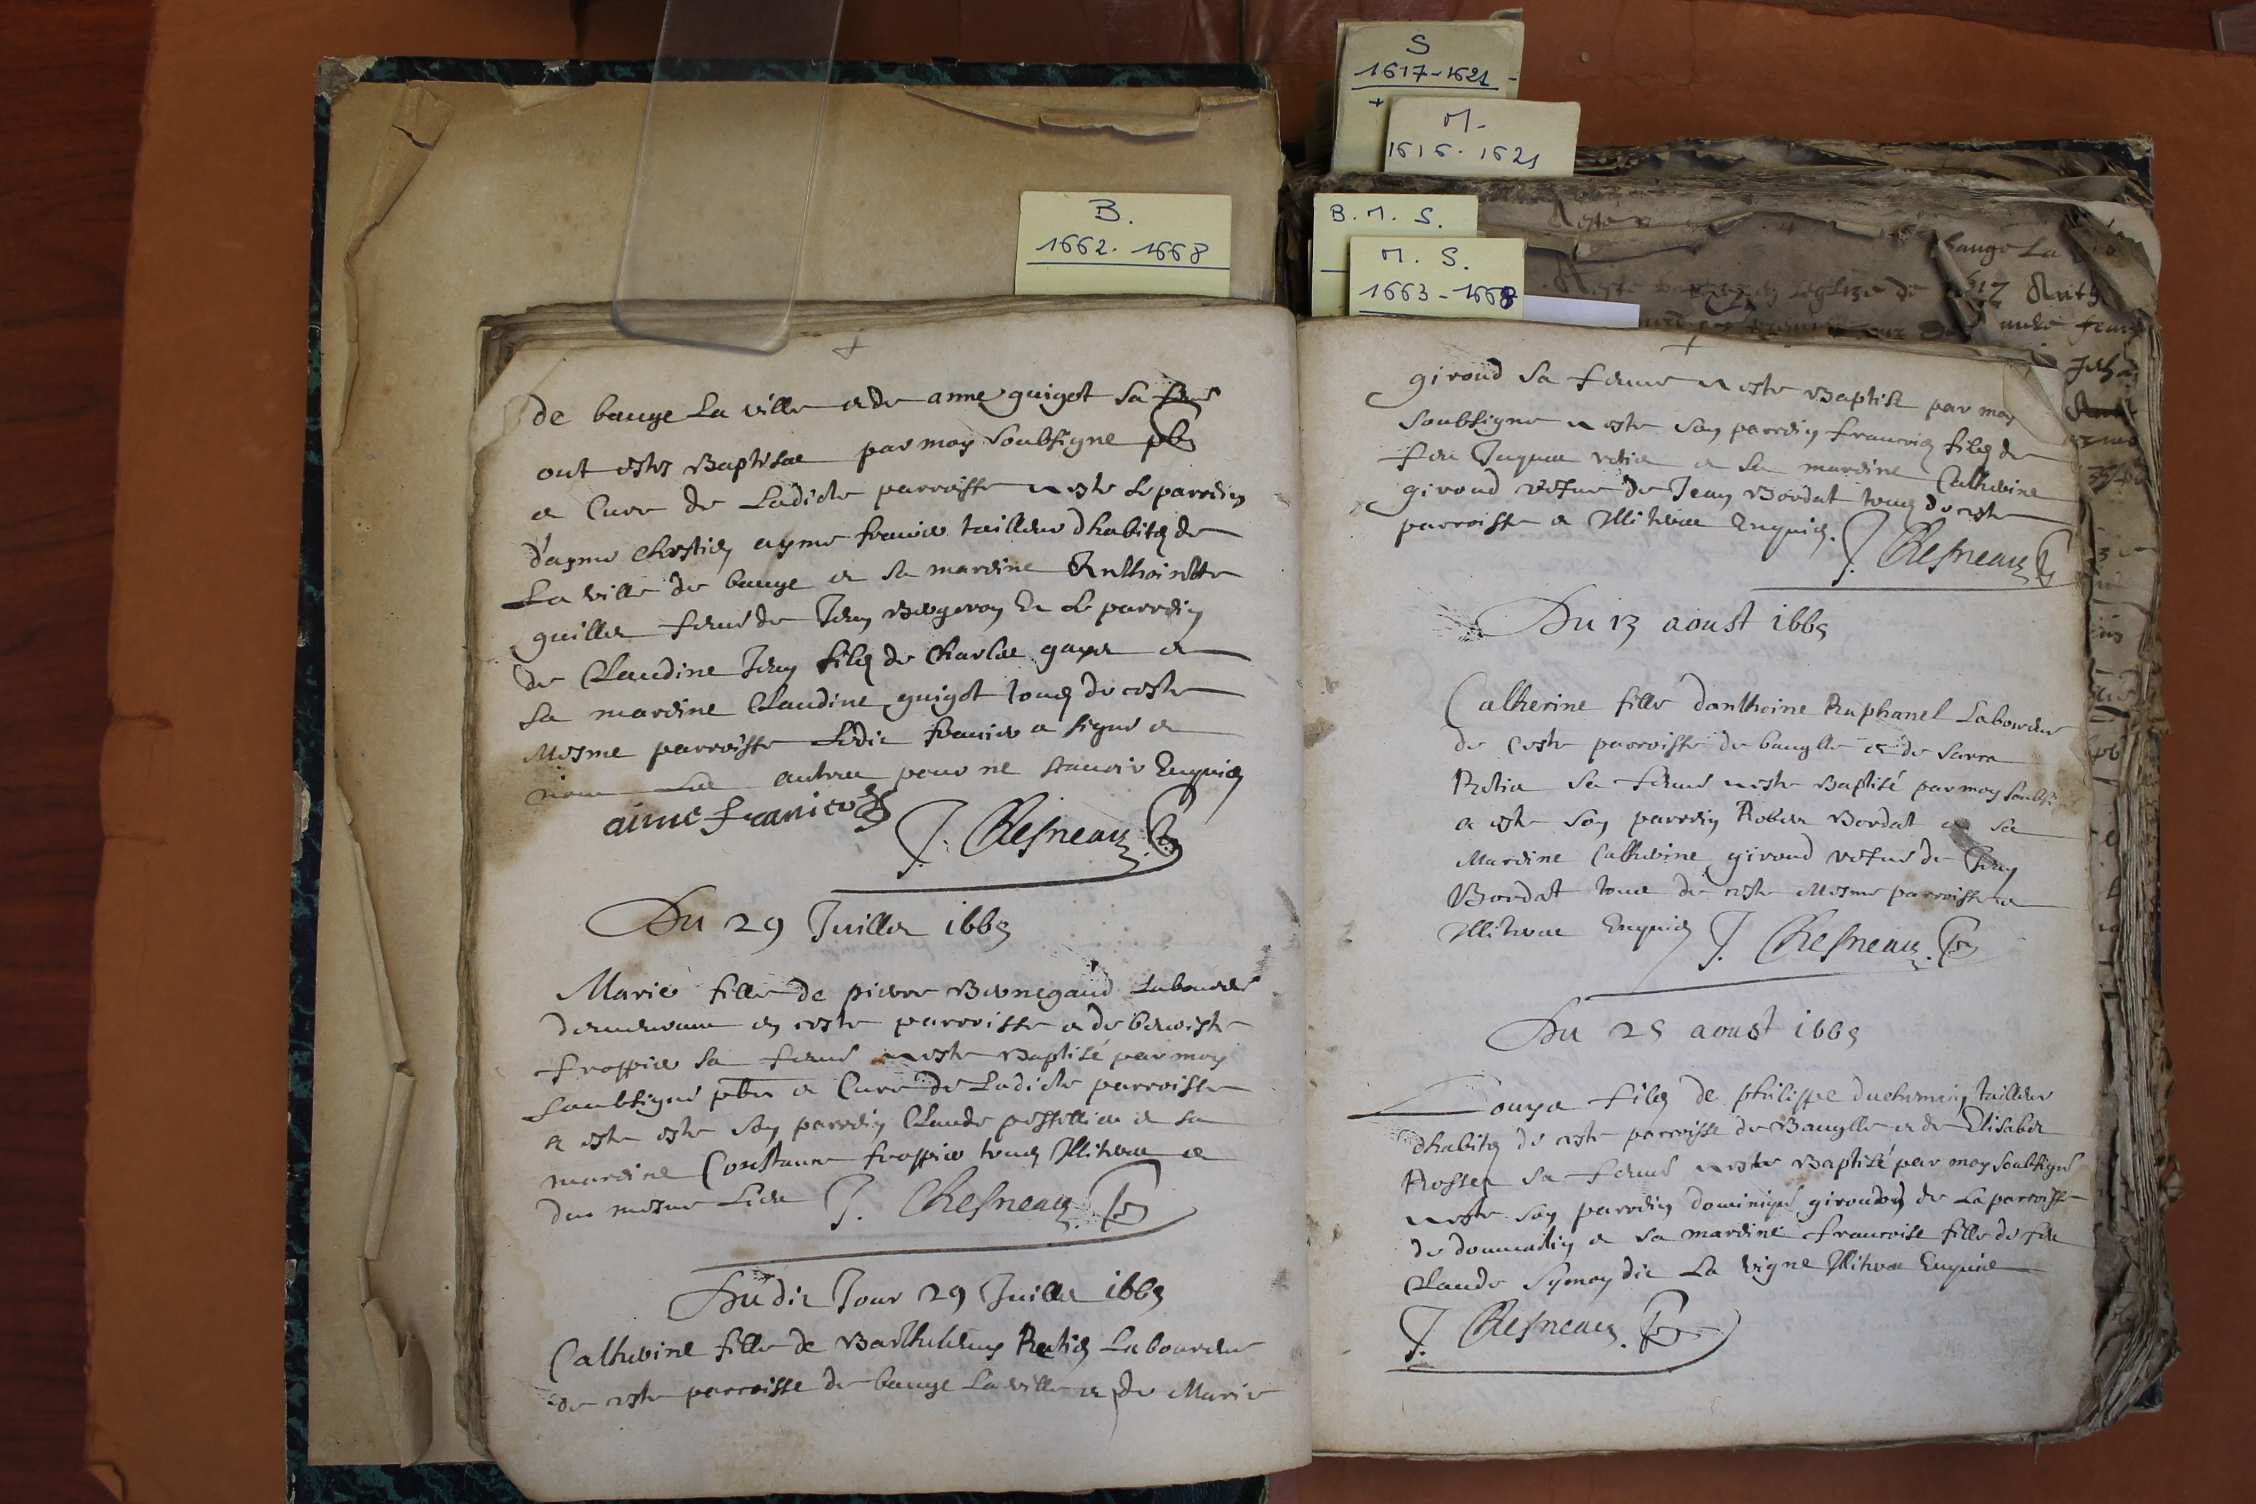 S
1617-1621
+
M.
1616. 1621
B.
1662. 1668
B. M. S.
M. S.
1663-1668
de bauge La ville et de anne guigot sa
ont estes Baptisee par moy Soubsigne pbr
et Cure de Ladicte parroisse a este le parrein
d'ayme Chrestien ayme franier tailleur dhabitz de
La ville de bauge et sa mareine Anthoinette
guillet feme de Jean Bergeron Et Le parrein
de Claudine Jean filz de Charles gayet et
sa mareine Claudine guigot tous de ceste
Mesme parroisse Ledit franier a signe et
non Les autres pour ne scauoir Enquis
aime franier
J. Chesneau
Du 29 Juillet 1665
Marie fille de pierre Bernegaud Laboureur
demeurant en ceste parroisse et de benoiste
froppier sa feme a este Baptisé par moy
soubsigné pbre et Cure de Ladicte parroisse
a este este son parrein Claude et sa
mareine Constance froppier tous Illiteres et
du mesme Lieu J. Chesneau
Dudit Jour 29 Juillet 1665
Catherine fille de Barthelemy Retis Laboureur
de ceste parroisse de bauge La ville et de Marie
giroud sa femme a este Baptise par moy
Soubsigne a este son parrein francois filz de
feu Jaques retis et sa mareine Catherine
giroud vefue de Jean Bordat tous de ceste
parroisse et Illiteres Enquis. J. Chesneau
Du 13 aoust 1665
Catherine fille danthoine Raphanel Laboureur
de ceste parroisse de bauglle et de
Retis sa feme a este Baptisé par moy soubsigne
a este son parrein Robert Bordat et sa
Mareine Catherine giroud vefue de Jean
Bordat tous de ceste Mesme parroisse et
Illiteres Enquis J. Chesneau
Du 25 aoust 1665
Louys filz de philippe duchemin tailleur
dhabitz de ceste parroisse de Bauglle et de Elisabet
Rosset sa feme a este Baptisé par moy soubsigné
a este son parrein dominique de La parroisse
de et sa mareine francoise fille de feu
Claude Symon dit La vigne Illiteres Enquis
J. Chesneau